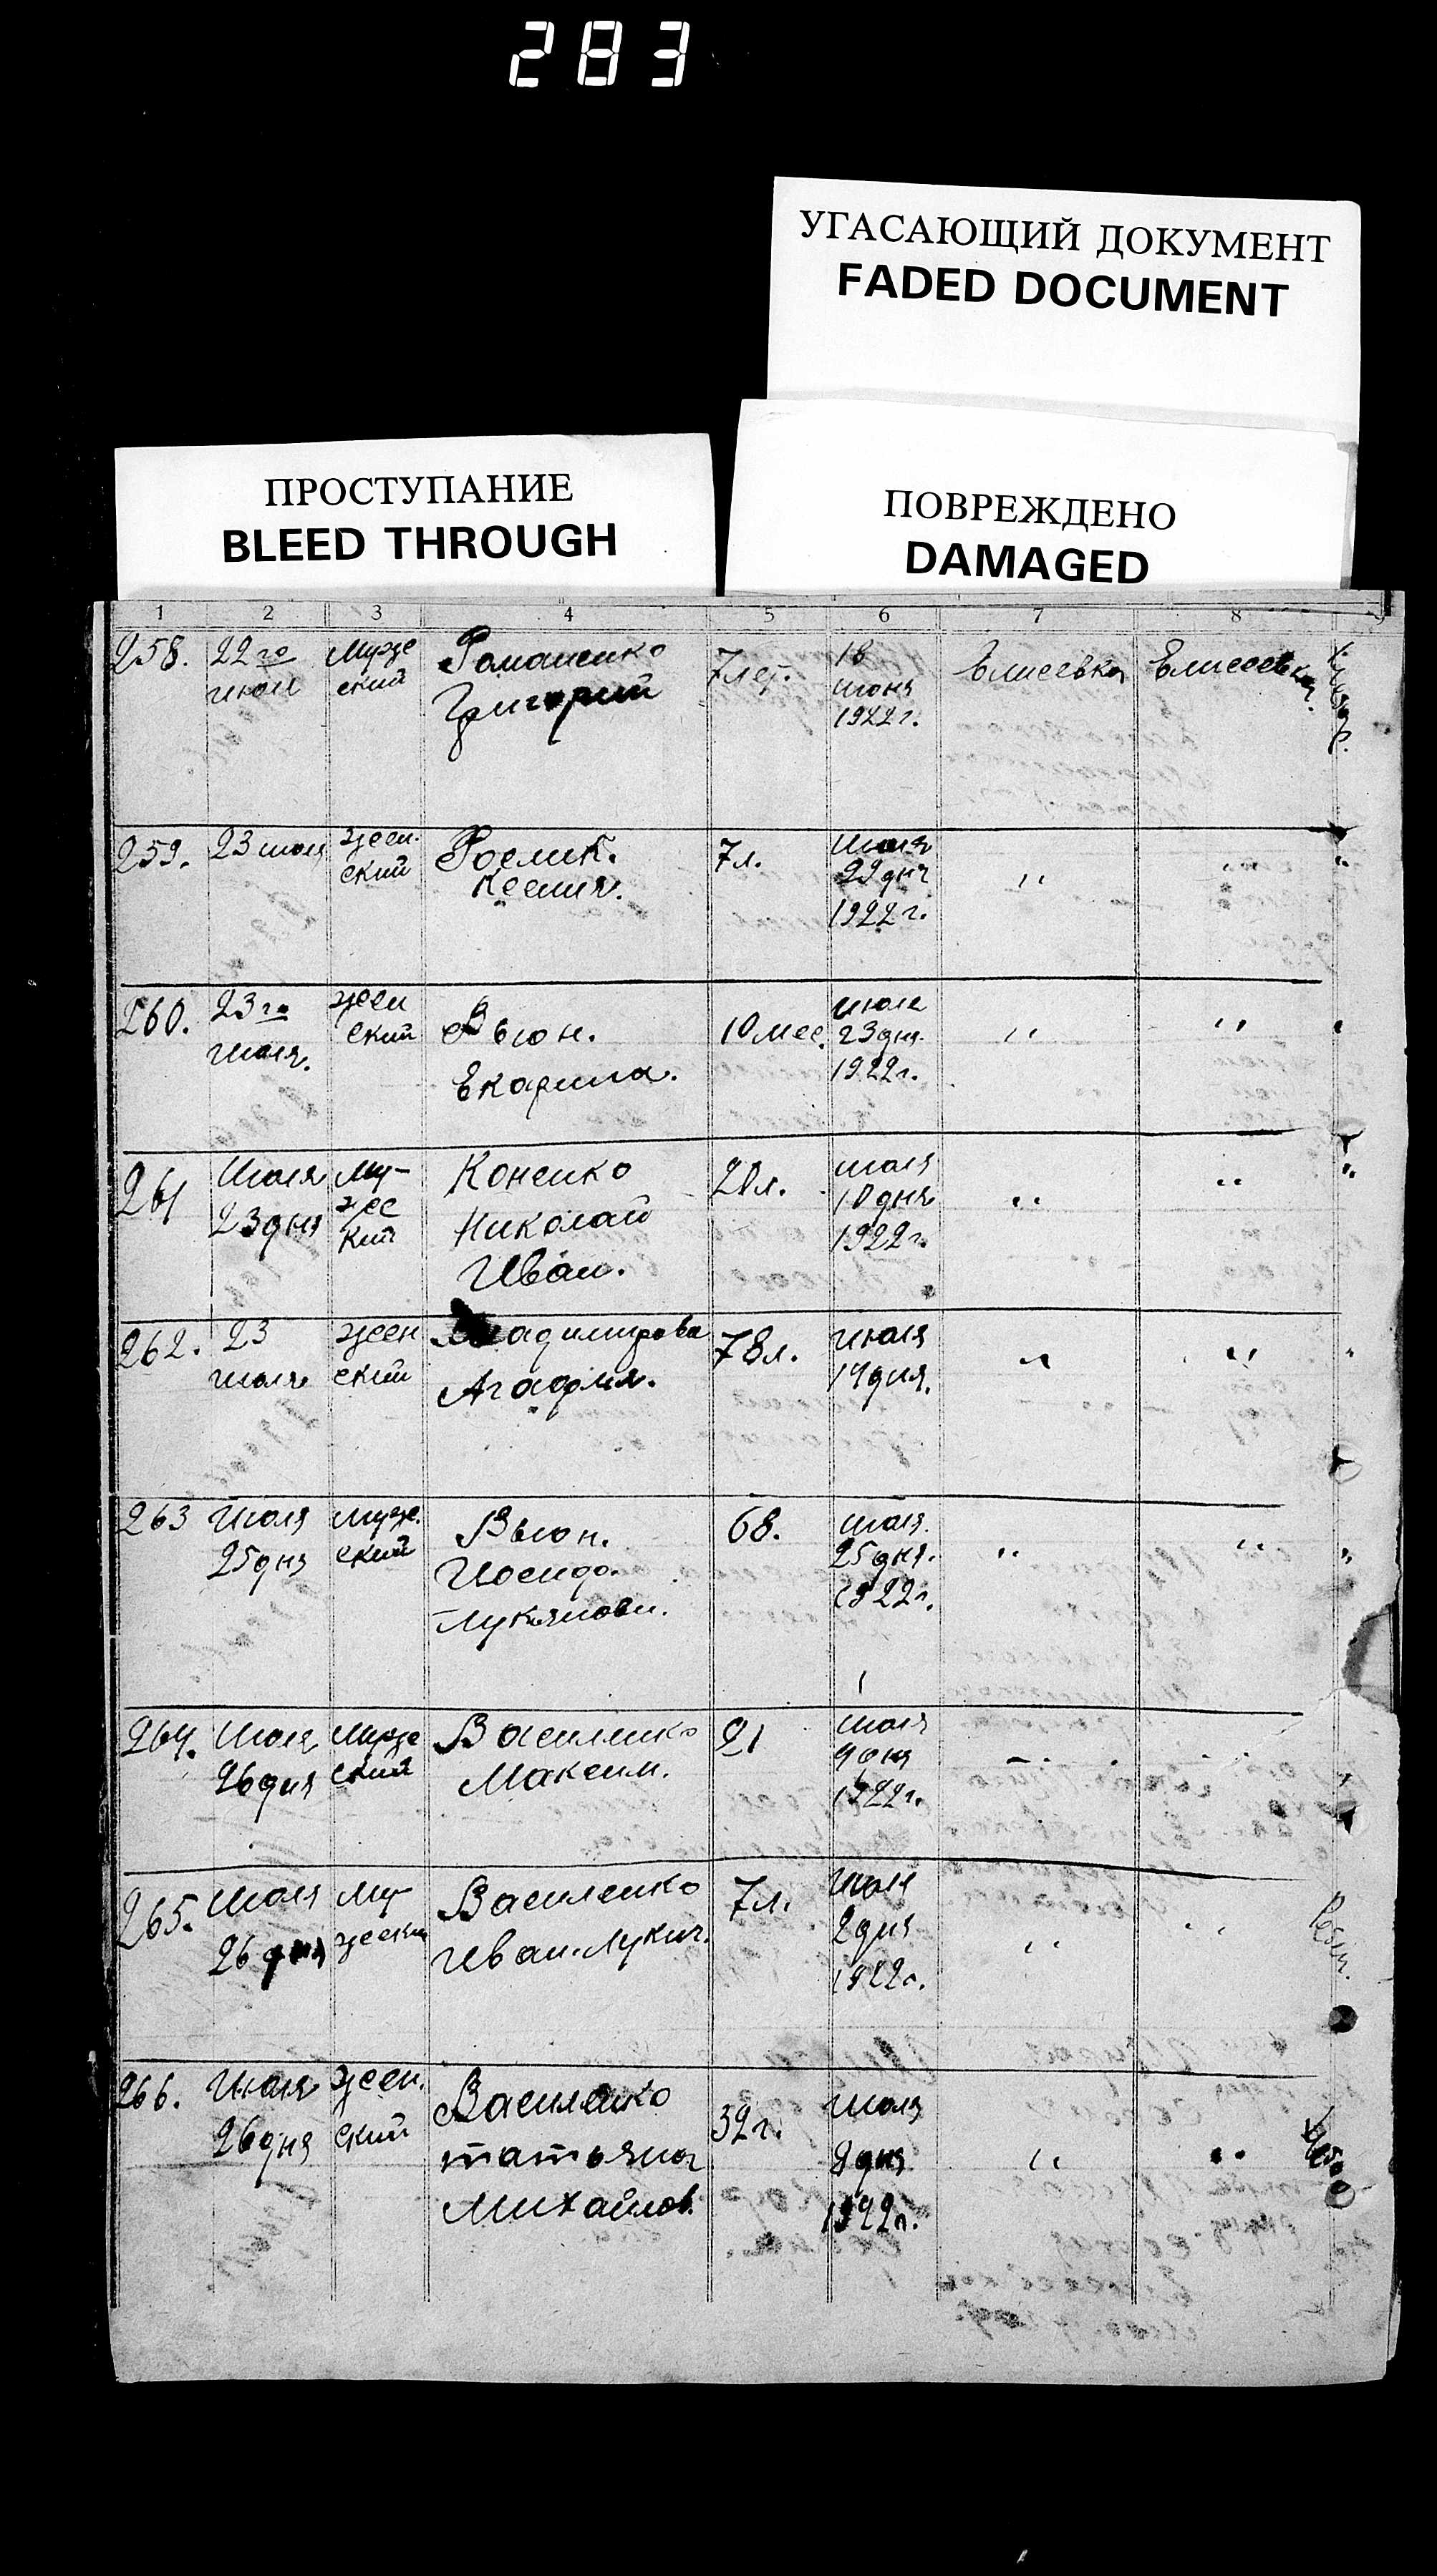 283
УГАСАЮЩИЙ ДОКУМЕНТ
FADED DOCUMENT
ПРОСТУПАНИЕ
BLEED THROUGH
ПОВРЕЖДЕНО
DAMAGED
1 2 3 4 5 6 7 8
258. 22го июля Мужс ский Романенко Григорий 7 лет. 18 июня 1922 г. Елисеевка Елисеевка.
259. 23 июля жен. ский Ксения. 7 л. Июля 22 дня 1922 г. " "
260. 23го Июля. жен ский Вьюн. Екарина. 10 мес. Июля 23 дня. 1922 г. " "
261 Июля 23 дня Му- жес кий Коненко Николай Иван. 20 л. июля 10 дня 1922 г. " " "
262. 23 июля жен ский Владимирова Агафия. 78 л. Июля 14 дня. " " "
263 Июля 25 дня мужс. ский Вьюн. Иосиф. Лукянови. 68. июля. 25 дня. 1922 г. " " "
264. Июля 26 дня Мужс ский Василенко Максим. 21 июля 9 дня 1922 г. " "
265. Июля 26 дня Му- жески Василенко Иван. Лукич. 7 л. Июля 2 дня 1922 г. " "
266. Июля 26 дня жен. ский Василенко татьяна Михайлов. 32 г. Июля 8 дня 1922 г. " "